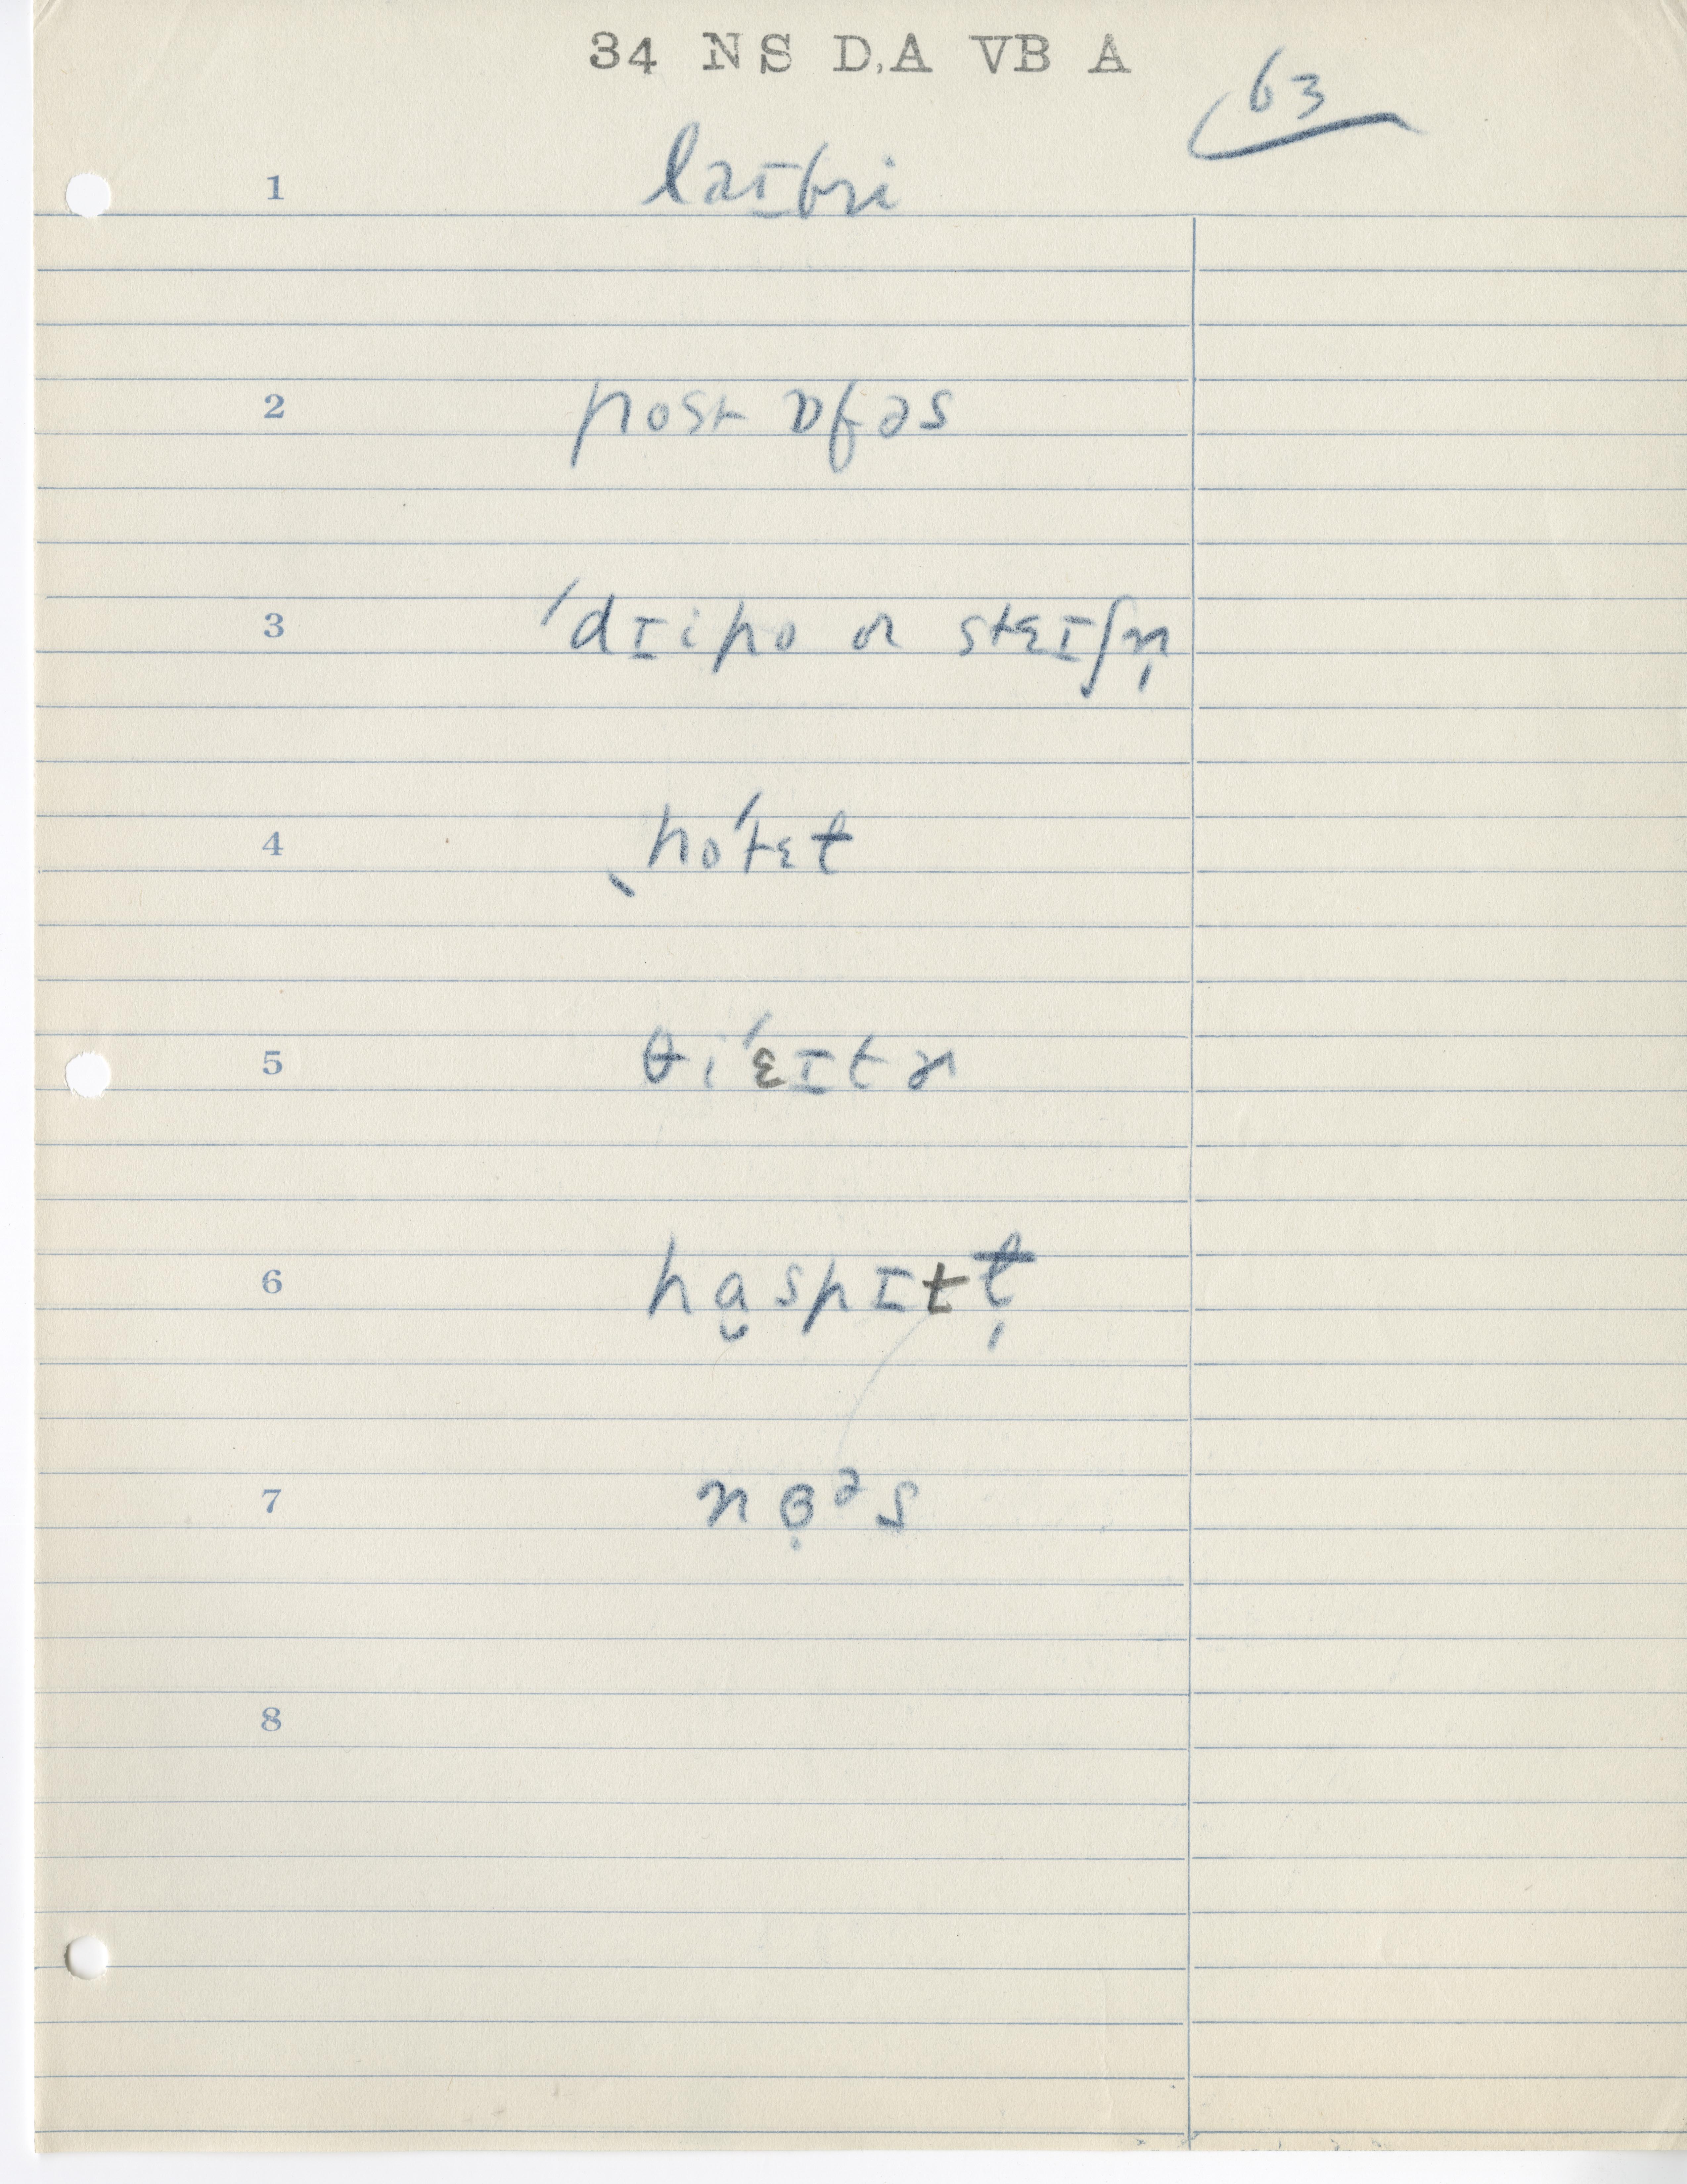 34 NS D,A VB A
63
1 laɪbri
2 post ɒfəs
3 ˈdɪipo or stɛɪʃn̩
4 ˌhoˈtɛɫ
5 θiˈɛɪtɚ
6 ha̬spɪtɫ̩
7 nɵ̣ᵊs
8